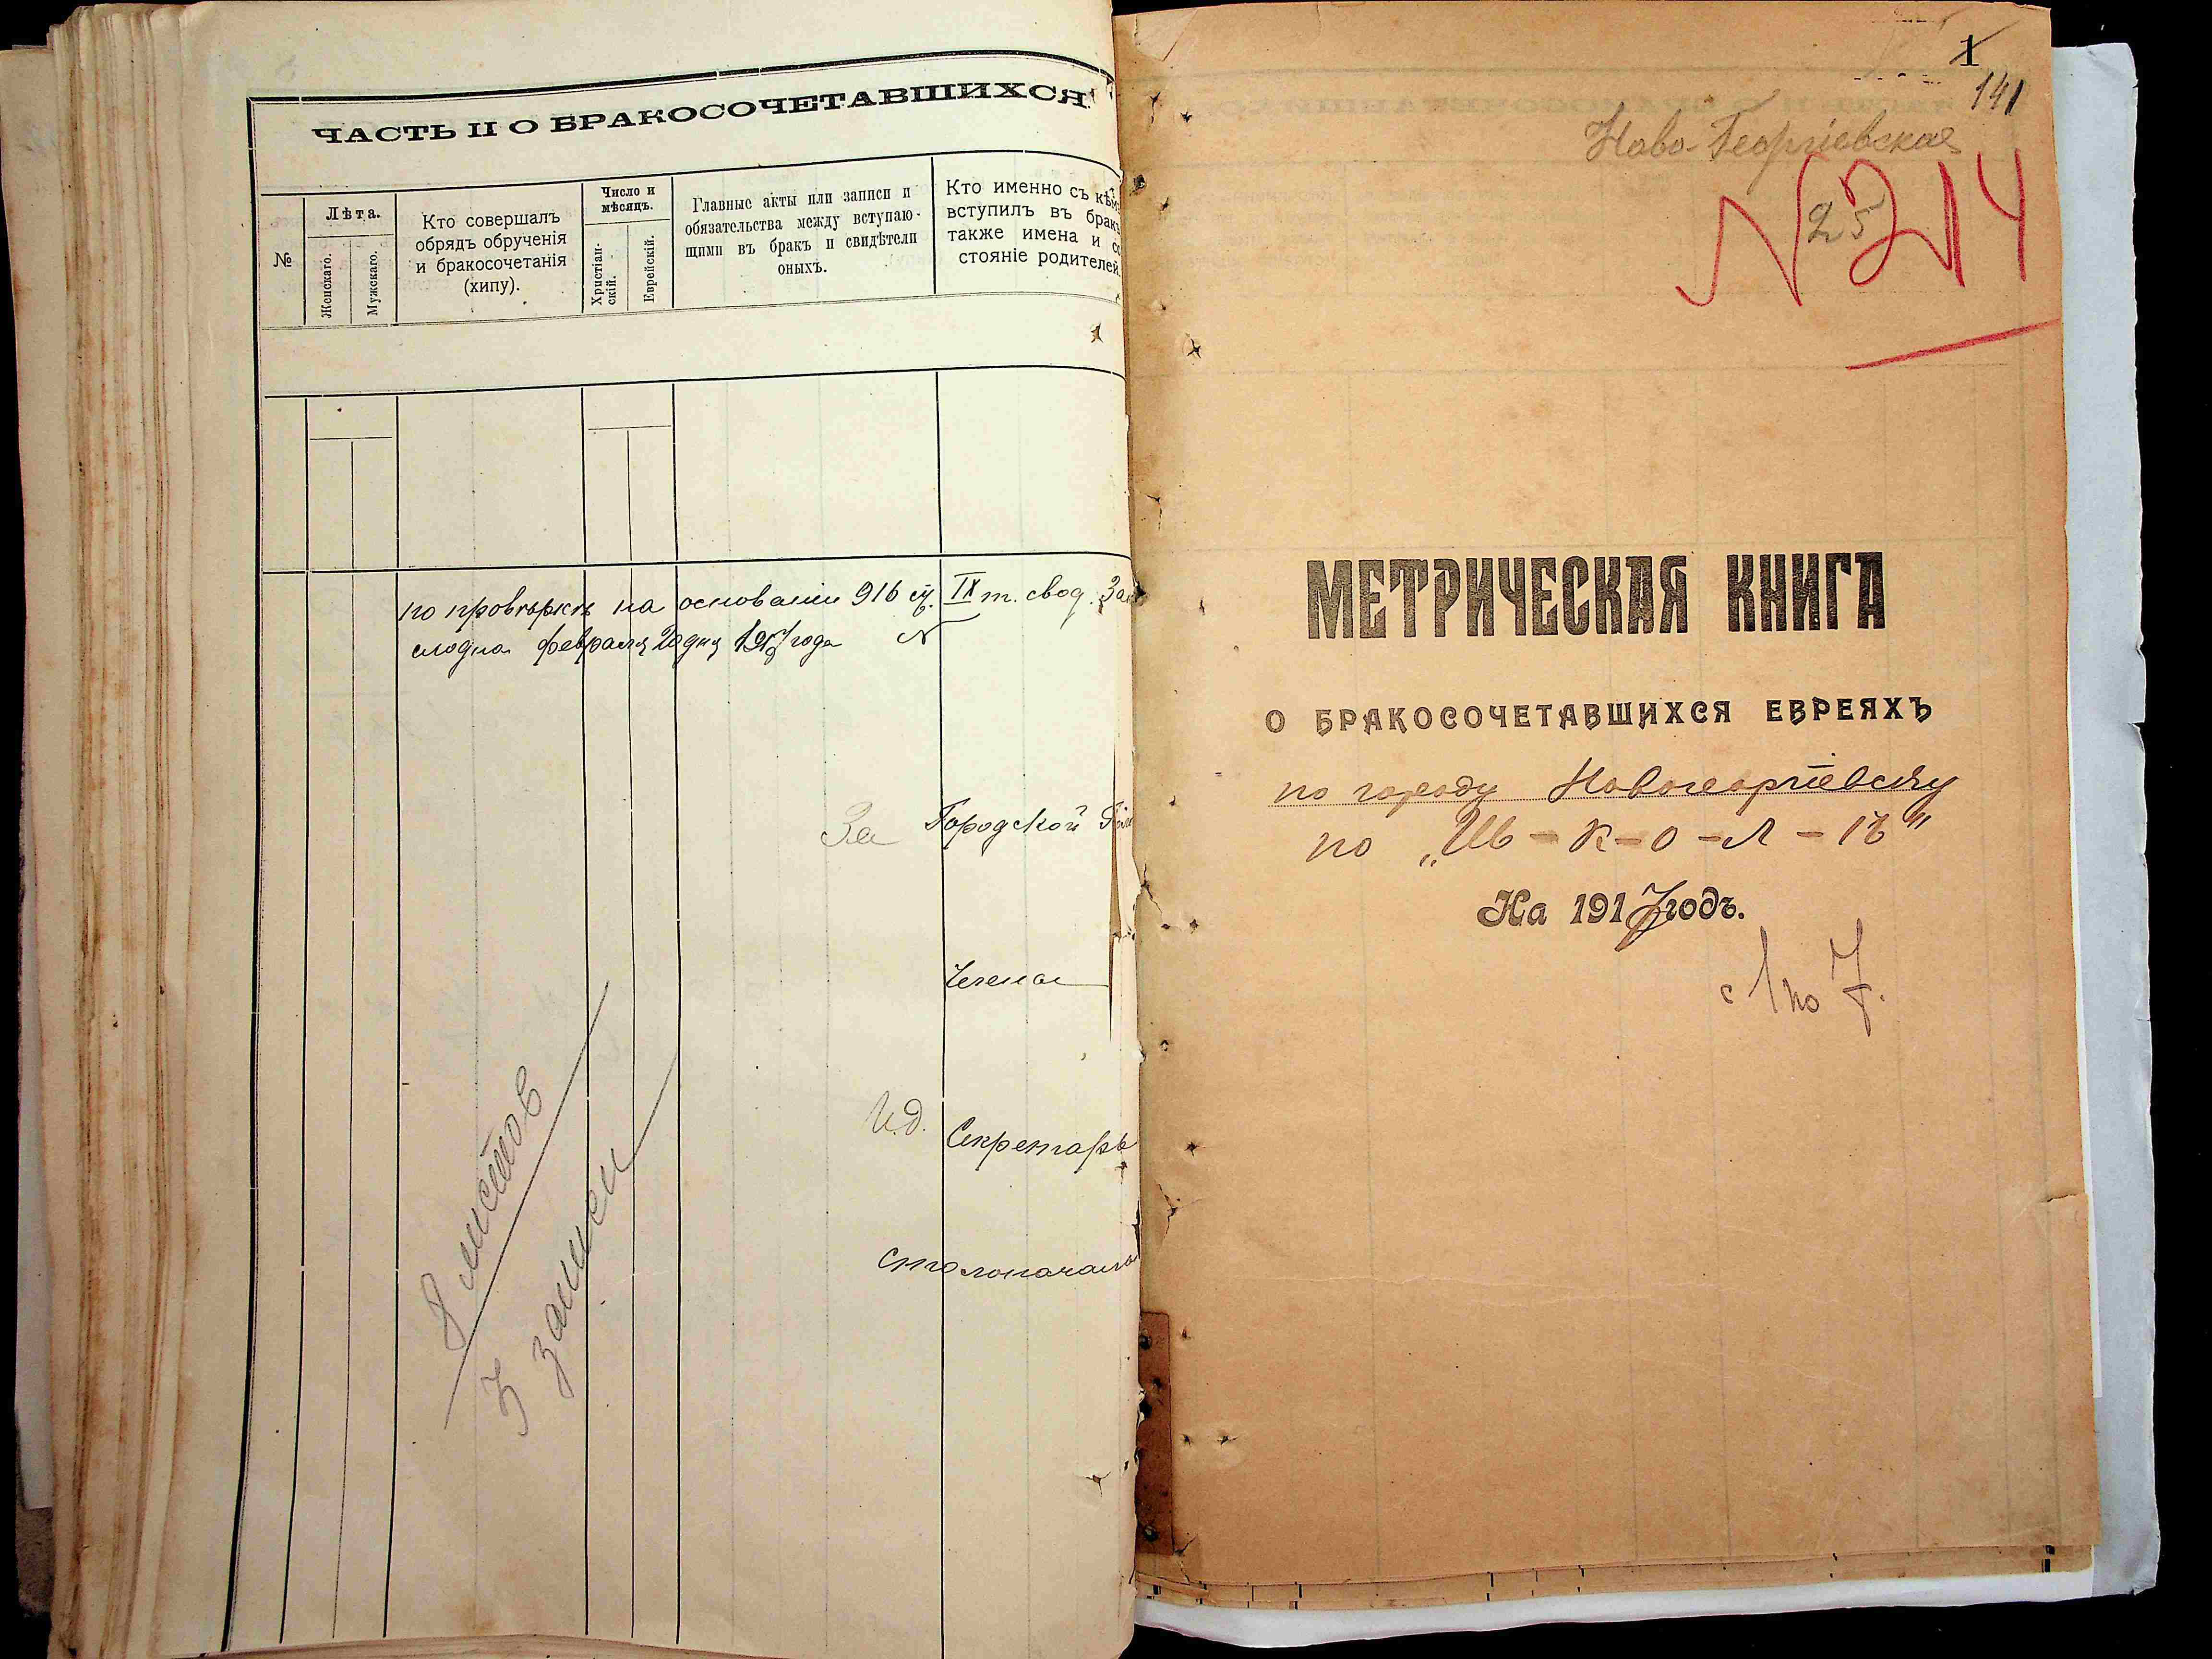 ЧАСТЬ II О БРАКОСОЧЕТАВШИХСЯ
№
Лѣта.
Женскаго.
Мужскаго.
Кто совершалъ
обрядъ обрученія
и бракосочетанія
(хипу).
Число и
мѣсяцъ.
Христіан-
скій.
Еврейскій.
Главные акты или записи и
обязательства между вступаю-
щими въ бракъ и свидѣтели
оныхъ.
Кто именно съ кѣмъ
вступилъ въ бракъ
также имена и со
стояніе родителей.
по провѣркѣ на основаніи 916 ст. IX т. свод. Зак
февраля 20 дня 1917 года №
За Городской
Члены
И.д. Секретарь
Столоначаль
8 листов
3 записи
1
141
Ново-Георгіевская
25
N 214
МЕТРИЧЕСКАЯ КНИГА
О БРАКОСОЧЕТАВШИХСЯ ЕВРЕЯХЪ
по городу Новогеоргіевску
по „Ш-К-О-Л-Ѣ"
На 1917 годъ.
с 1 по 7.